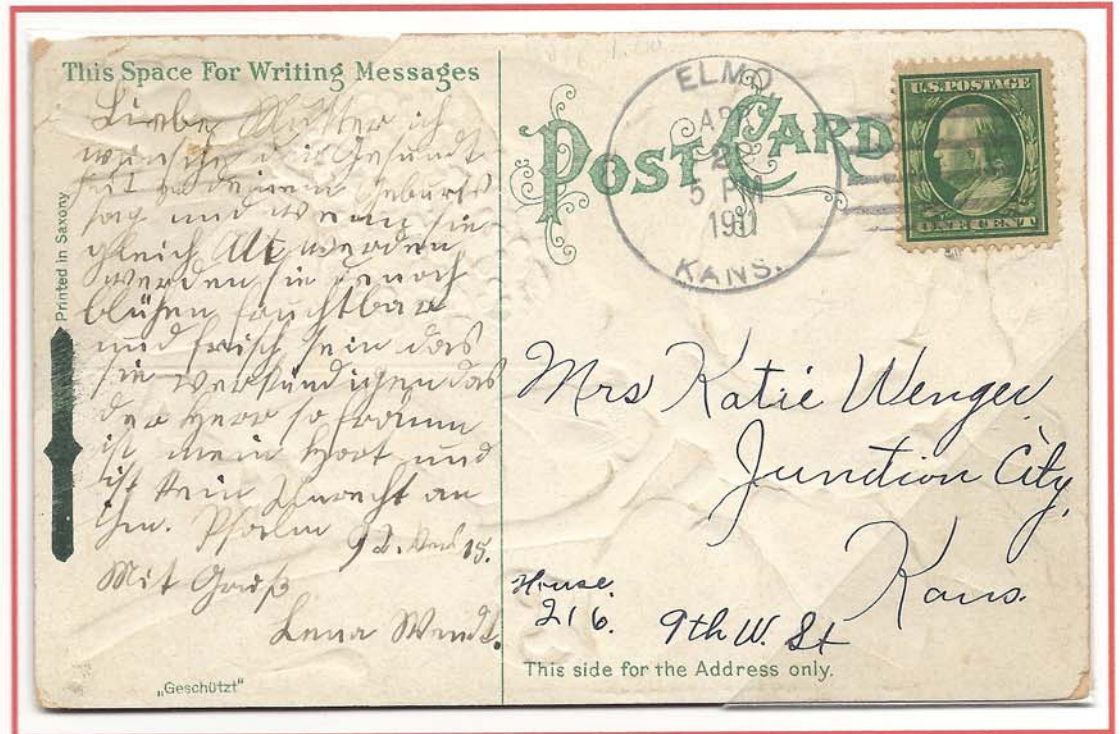 This Space For Writing Messages
Liebe Mutter ich
wünsche dir Gesund
heit zu deinem Geburts
tag und wenn sie
gleich Alt werden
werden sie denoch
blühen fruchtbar
und frisch sein das
sie verkündigen das
der Herr so fromm
ist mein Hort und
ist kein Unrecht an
ihm. Psalm 92. Vers 15.
Mit Gruß
Lena Wendt.
„Geschützt"
Printed in Saxony
POST CARD
ELMO,
2
5 PM
1911
KANS.
U.S. POSTAGE
ONE CENT
Mrs Katie Wenger
Junction City,
Kans.
House.
216. 9th W. St
This side for the Address only.